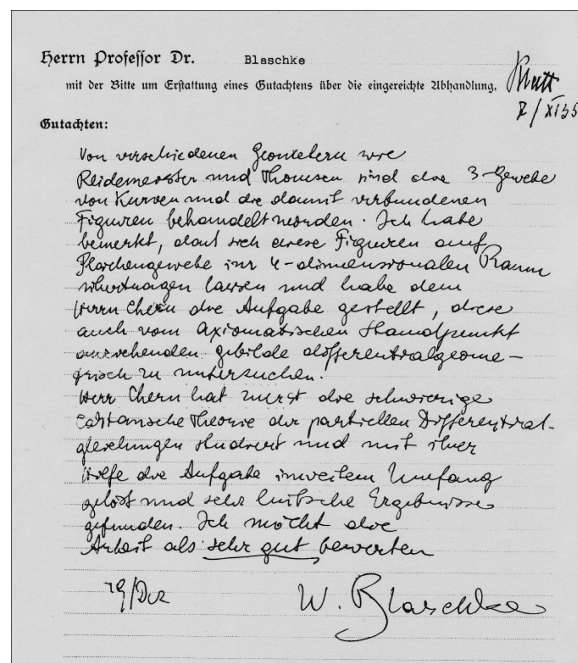 Herrn Professor Dr. Blaschke
mit der Bitte um Erstattung eines Gutachtens über die eingereichte Abhandlung.
7/XI35
Gutachten:
Von verschiedenen Geometern wie
Reidemeister und Thomsen sind die 3-Gewebe
von Kurven und die damit verbundenen
Figuren behandelt worden. Ich habe
bemerkt, dass sich diese Figuren auf
Flächengewebe im 4-dimensionalen Raum
übertragen lassen und habe dem
Herrn Chern die Aufgabe gestellt, diese
auch vom axiomatischen Standpunkt
Gebilde differentialgeome-
trisch zu untersuchen.
Herr Chern hat zuerst die schwierige
Cartansche Theorie der partiellen Differential-
gleichungen studiert und mit ihrer
Hilfe die Aufgabe in weitem Umfang
gelöst und sehr hübsche Ergebnisse
gefunden. Ich möcht die
Arbeit als sehr gut bewerten
19/Dez W. Blaschke